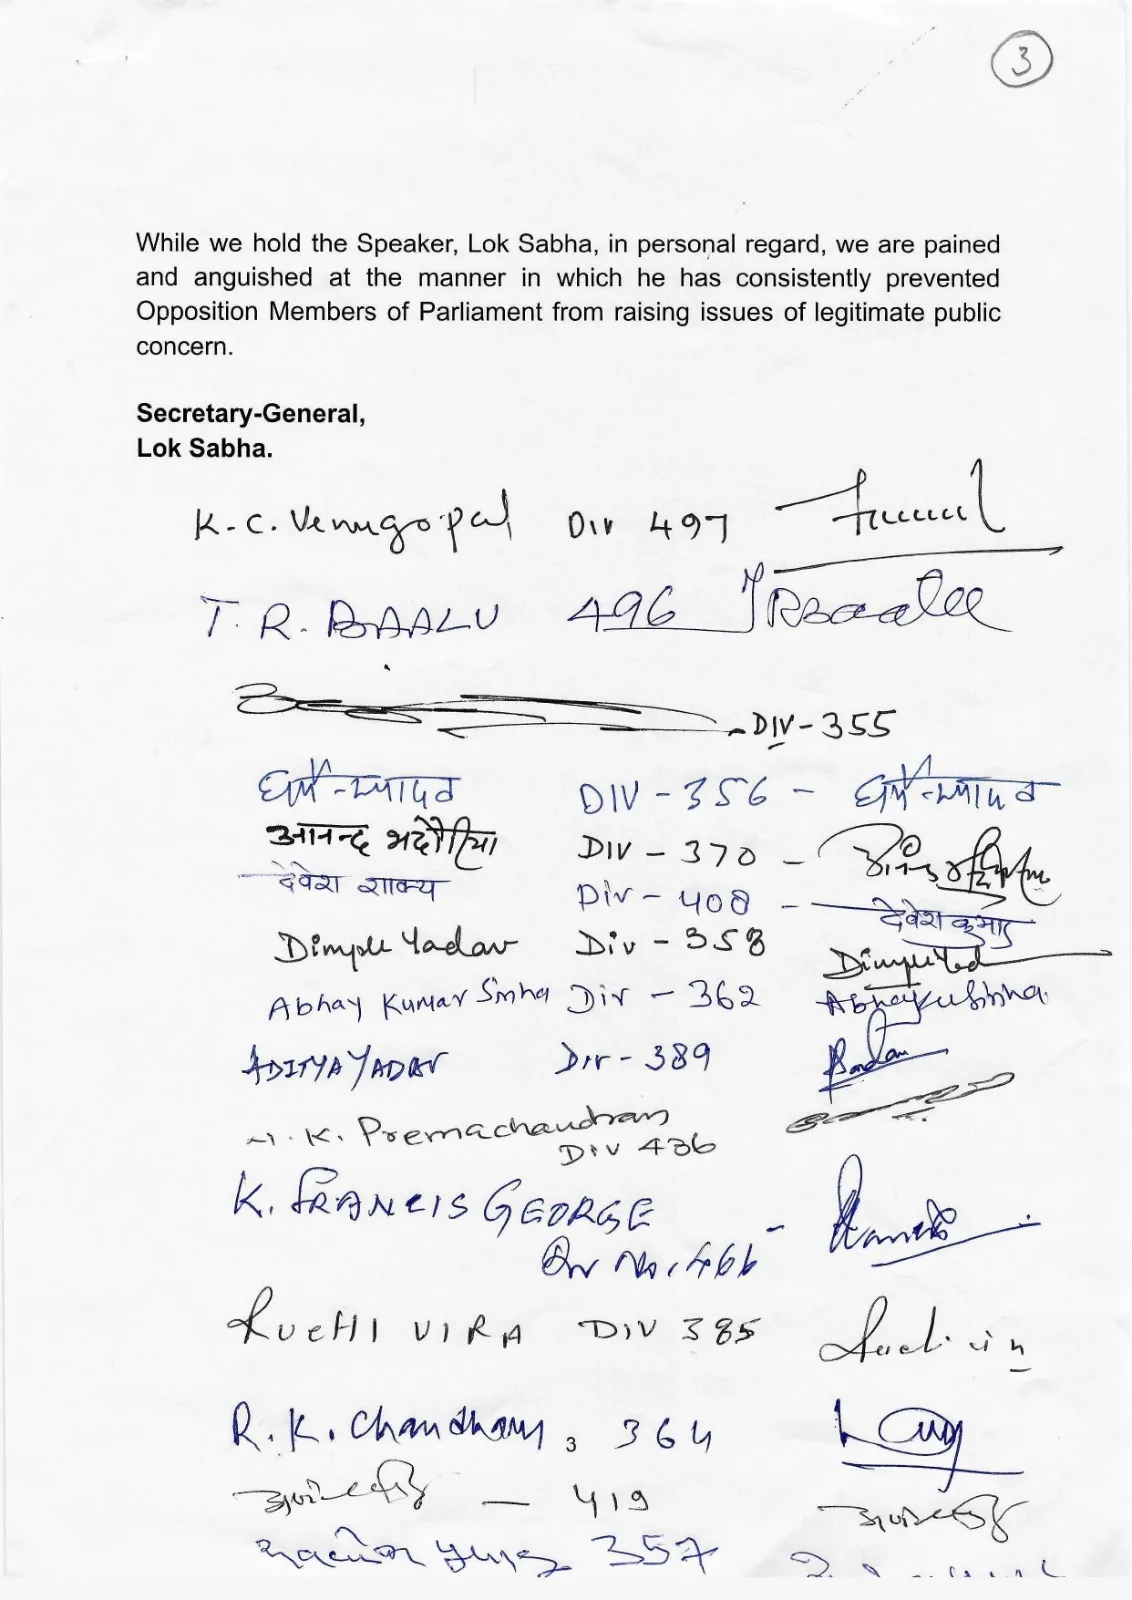 3
While we hold the Speaker, Lok Sabha, in personal regard, we are pained
and anguished at the manner in which he has consistently prevented
Opposition Members of Parliament from raising issues of legitimate public
concern.
Secretary-General,
Lok Sabha.
K.C. Venugopal Div 497
T.R. BAALU 496 TRBaalu
DIV-355
DIV - 356 -
आनन्द भदौरिया DIV - 370 -
देवेश शाक्य Div - 408 - देवेश कुमार
Dimple Yadav Div - 358
Abhay Kumar Sinha Div - 362
ADITYA YADAV Div - 389
K. Premachandran
DIV 436
K. FRANCIS GEORGE -
Div No. 466
RUCHI VIRA DIV 385
R.K. 364
3
— 419
357